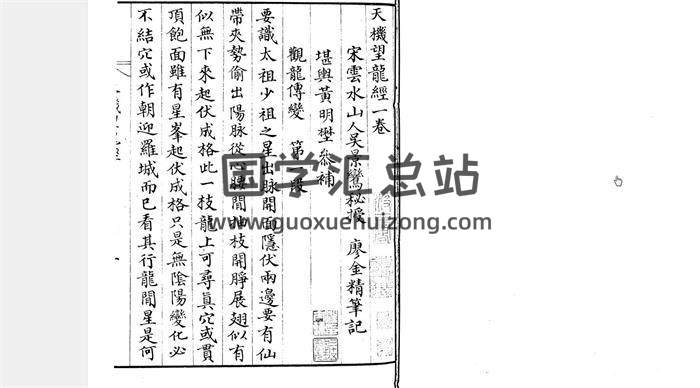 天機望龍經一卷
宋雲水山人吴景鸞秘授 廖金精筆記
堪輿黄明㙯叅補
觀龍傳變 第一段
要識太祖少祖之星出脉開面隱伏兩邊要有仙
帶夾勢偷出陽脉從心腰間抽枝開睜展翅似有
似無下來起伏成格此一枝龍上可尋真穴或貫
頂飽面雖有星峯起伏成格只是無陰陽變化必
不結穴或作朝迎羅城而已看其行龍開星是何
国学汇总站
www.guoxuehuizong.com